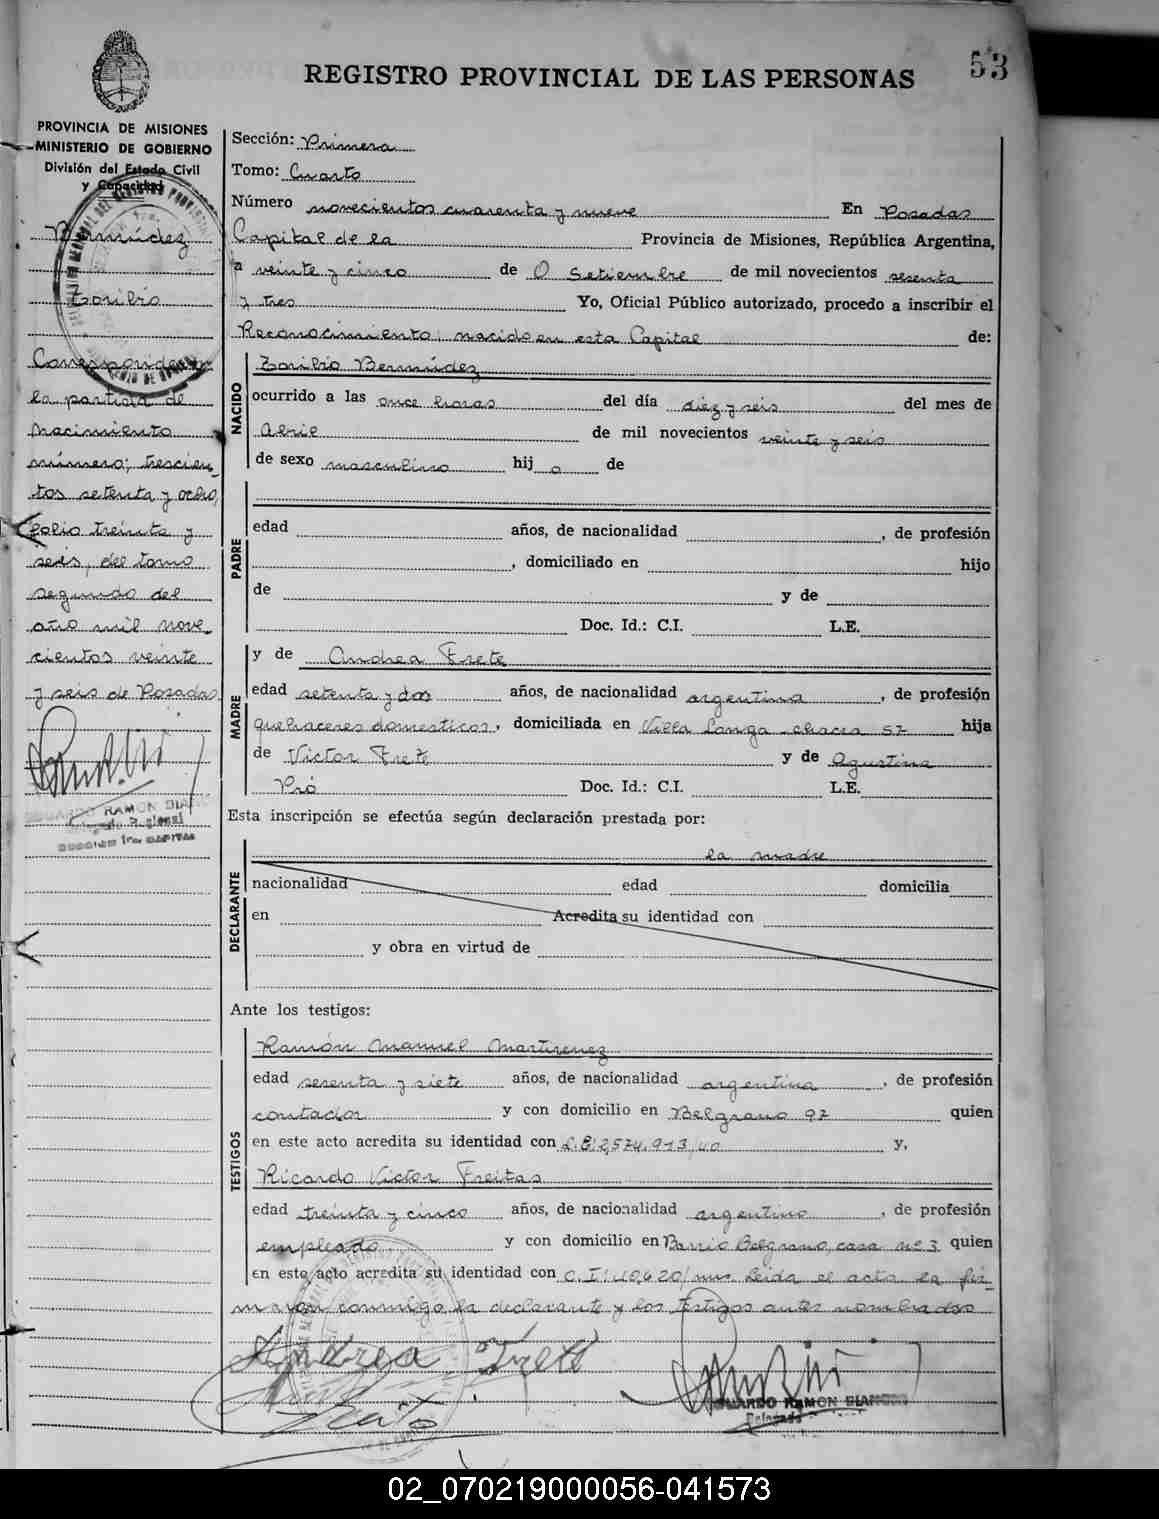 REGISTRO PROVINCIAL DE LAS PERSONAS
53
PROVINCIA DE MISIONES
MINISTERIO DE GOBIERNO
División del Estado Civil
y Capacidad
Bermúdez
Toribio
Corresponde a
la partida de
nacimiento
número; trescien_
tos setenta y ocho,
folio treinta y
seis, del tomo
segundo del
año mil nove_
cientos veinte
y seis de Posadas
EDUARDO RAMON BIANCHI
Sección: Primera
Tomo: Cuarto
Número novecientos cuarenta y nueve En Posadas
Capital de la Provincia de Misiones, República Argentina,
a veinte y cinco de Setiembre de mil novecientos sesenta
y tres Yo, Oficial Público autorizado, procedo a inscribir el
Reconocimiento; nacido en esta Capital de:
NACIDO
Toribio Bermúdez
ocurrido a las once horas del día diez y seis del mes de
Abril de mil novecientos veinte y seis
de sexo masculino hij o de
PADRE
edad años, de nacionalidad , de profesión
, domiciliado en hijo
de y de
Doc. Id.: C.I. L.E.
MADRE
y de Andrea Frete
edad setenta y dos años, de nacionalidad argentina , de profesión
quehaceres domesticos, domiciliada en Villa Longa chacra 57 hija
de Victor Frete y de Agustina
Pró Doc. Id.: C.I. L.E.
Esta inscripción se efectúa según declaración prestada por:
la madre
DECLARANTE
nacionalidad edad domicilia
en Acredita su identidad con
y obra en virtud de
Ante los testigos:
TESTIGOS
Ramón Manuel Martinez
edad sesenta y siete años, de nacionalidad argentina , de profesión
contador y con domicilio en Belgrano 97 quien
en este acto acredita su identidad con L.E: 2,574.913 y,
Ricardo Victor Freitas
edad treinta y cinco años, de nacionalidad argentino , de profesión
empleado y con domicilio en Barrio Belgrano, casa nº 3 quien
en este acto acredita su identidad con C.I: 40,620 Leida el acta la fir_
maron conmigo la declarante y los testigos antes nombrados
Andrea Frete
EDUARDO RAMON BIANCHI
Delegado
02_070219000056-041573